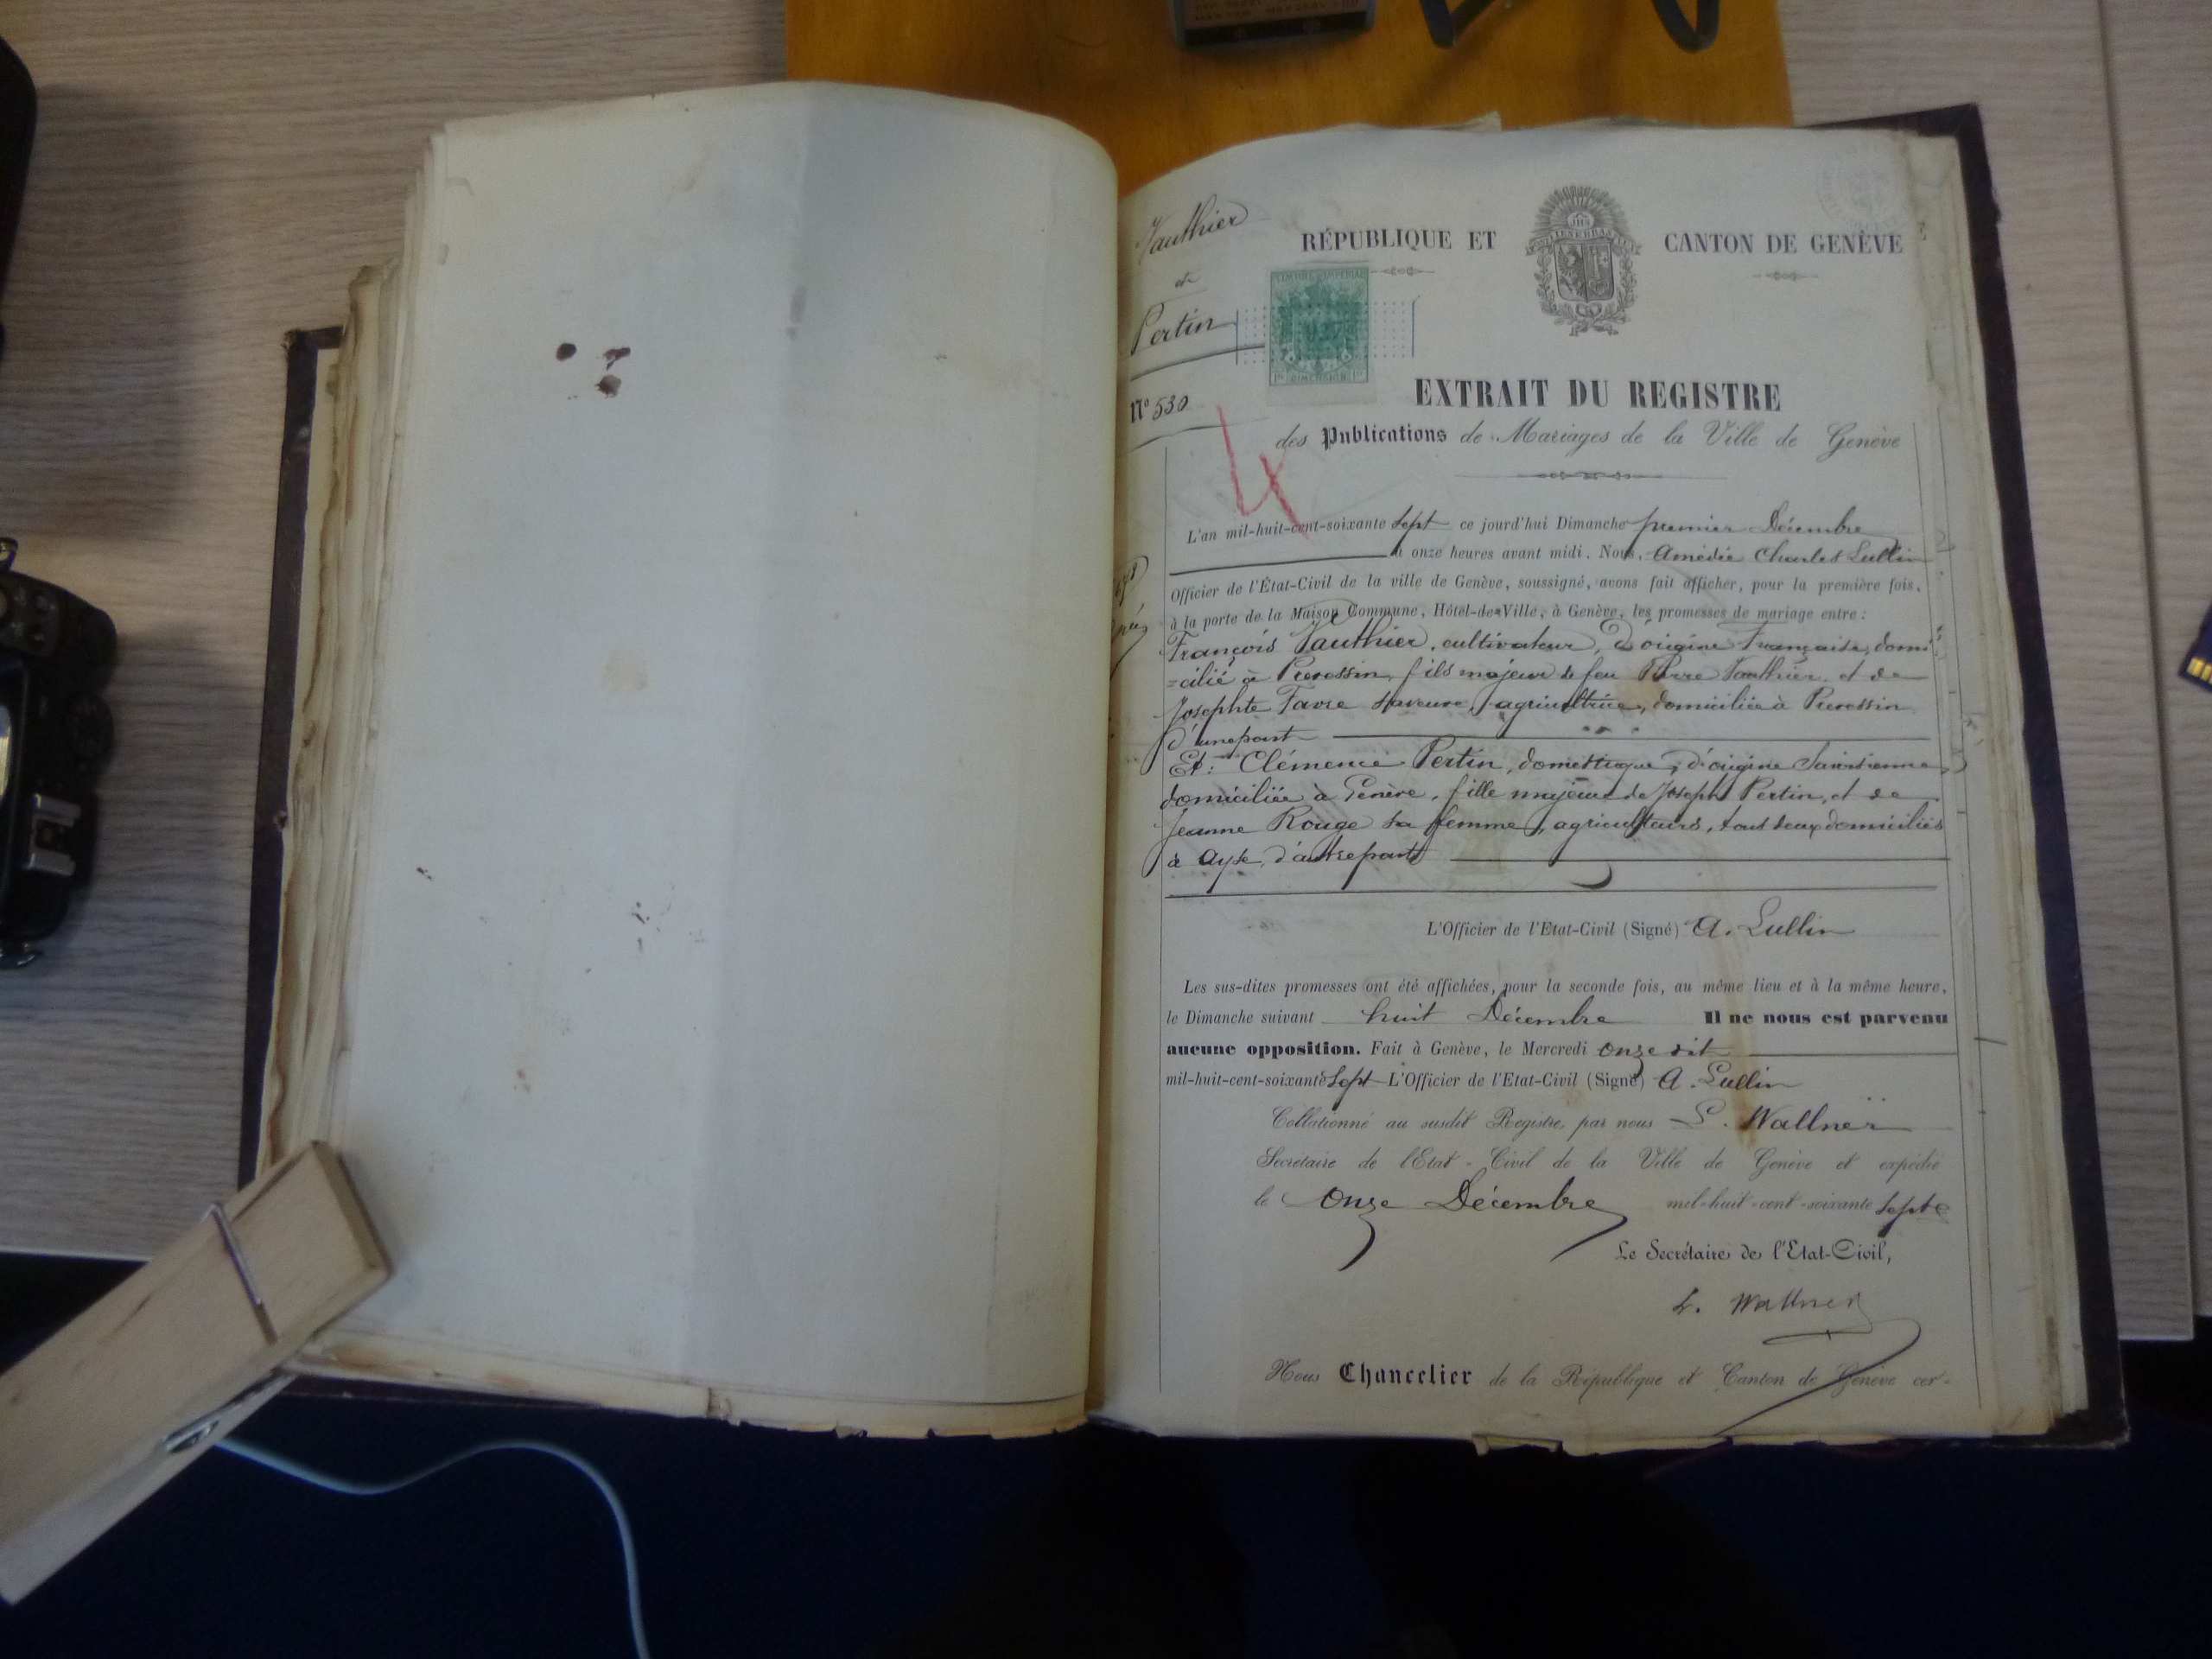 Vauthier
et
Pertin
N° 530
RÉPUBLIQUE ET CANTON DE GENÈVE
TIMBRE IMPÉRIAL
DIMENSION
EXTRAIT DU REGISTRE
des Publications de Mariages de la Ville de Genève
L'an mil-huit-cent-soixante sept ce jourd'hui Dimanche premier Décembre
à onze heures avant midi. Nous, Amédée Charles Lullin
Officier de l'État-Civil de la ville de Genève, soussigné, avons fait afficher, pour la première fois,
à la porte de la Maison Commune, Hôtel-de-Ville, à Genève, les promesses de mariage entre :
François Vauthier, cultivateur, d'origine Française, domi
=cilié à Prevessin, fils majeur de feu Pierre Vauthier et de
Josephte Favre sa veuve, agricultrice, domiciliée à Prevessin
d'une part
Et : Clémence Pertin, domestique, d'origine Savoisienne,
domiciliée à Genève, fille majeure de Joseph Pertin, et de
Jeanne Rouge sa femme, agriculteurs, tous deux domiciliés
à Ayse, d'autre part
L'Officier de l'Etat-Civil (Signé) A. Lullin
Les sus-dites promesses ont été affichées, pour la seconde fois, au même lieu et à la même heure,
le Dimanche suivant huit Décembre Il ne nous est parvenu
aucune opposition. Fait à Genève, le Mercredi onze dit
mil-huit-cent-soixante sept L'Officier de l'Etat-Civil (Signé) A. Lullin
Collationné au susdit Registre, par nous L. Wallner
Secrétaire de l'Etat-Civil de la Ville de Genève et expédié
le Onze Décembre mil-huit-cent-soixante sept
Le Secrétaire de l'Etat-Civil,
L. Wallner
Nous Chancelier de la République et Canton de Genève cer-